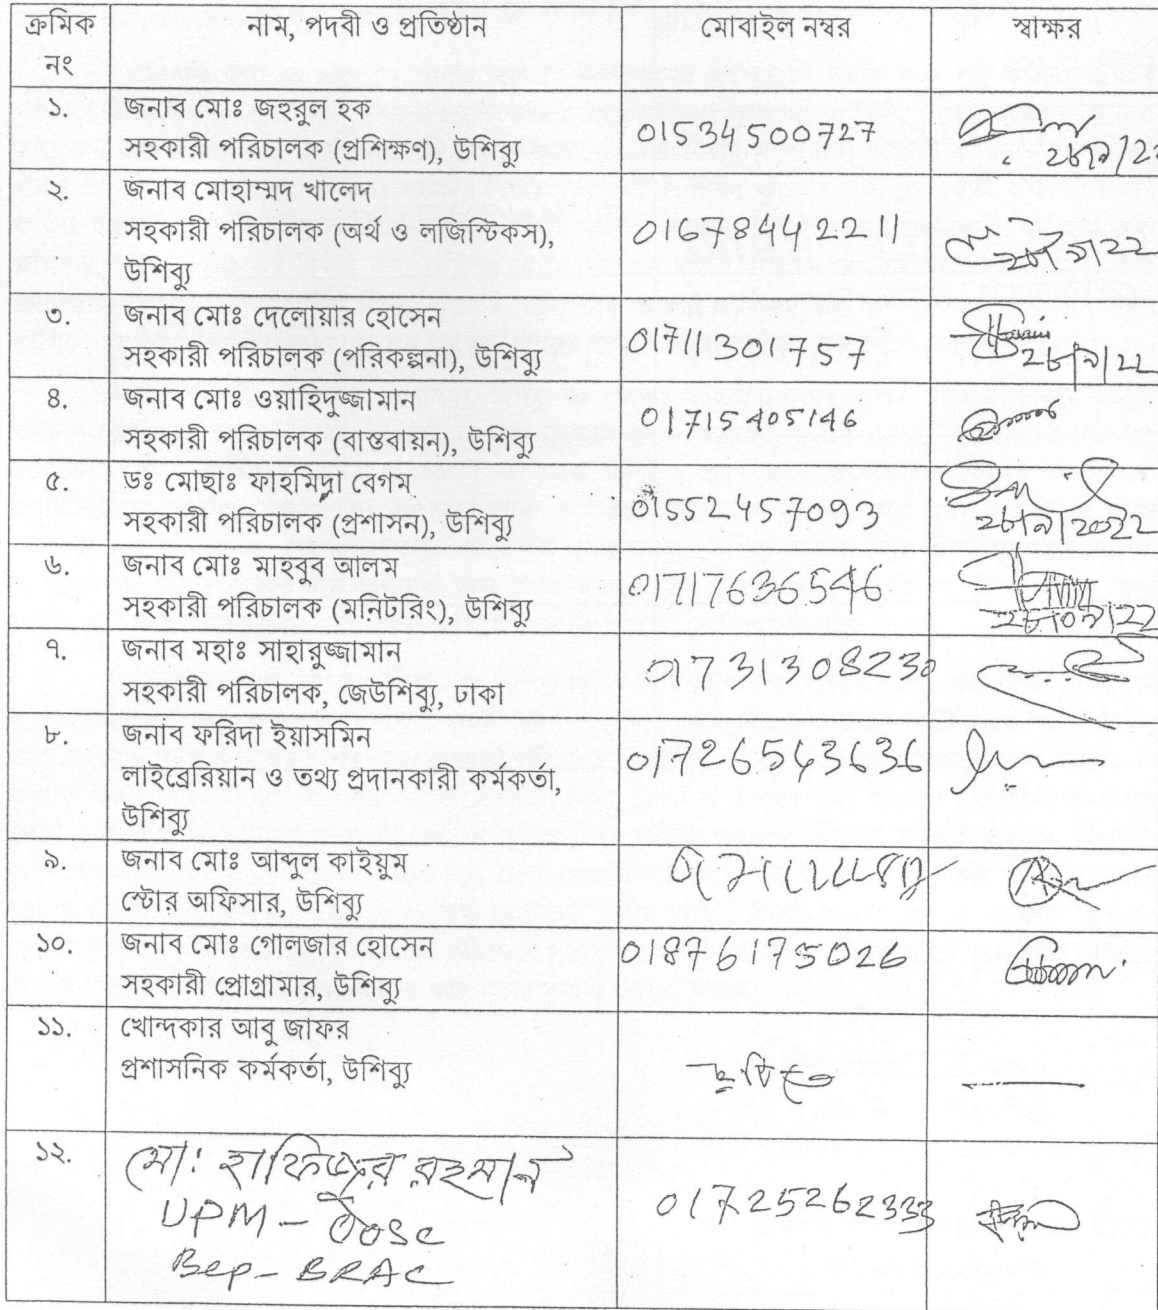 ক্রমিক নং নাম, পদবী ও প্রতিষ্ঠান মোবাইল নম্বর স্বাক্ষর
১. জনাব মোঃ জহুরুল হক
সহকারী পরিচালক (প্রশিক্ষণ), উশিব্যু 01534500727
২৮/৯/২২
২. জনাব মোহাম্মদ খালেদ
সহকারী পরিচালক (অর্থ ও লজিস্টিকস), 01678442211
উশিব্যু ২৮/৯/২২
৩. জনাব মোঃ দেলোয়ার হোসেন
সহকারী পরিচালক (পরিকল্পনা), উশিব্যু 01711301757
২৮/৯/২২
৪. জনাব মোঃ ওয়াহিদুজ্জামান
সহকারী পরিচালক (বাস্তবায়ন), উশিব্যু 01715405146
৫. ডঃ মোছাঃ ফাহমিদা বেগম
সহকারী পরিচালক (প্রশাসন), উশিব্যু 01552457093
২৮/৯/২০২২
৬. জনাব মোঃ মাহবুব আলম
সহকারী পরিচালক (মনিটরিং), উশিব্যু 01717636546
২৮/০৯/২২
৭. জনাব মহাঃ সাহারুজ্জামান
সহকারী পরিচালক, জেউশিব্যু, ঢাকা 01731308230
৮. জনাব ফরিদা ইয়াসমিন
লাইব্রেরিয়ান ও তথ্য প্রদানকারী কর্মকর্তা, 01726543636
উশিব্যু
৯. জনাব মোঃ আব্দুল কাইয়ুম
স্টোর অফিসার, উশিব্যু
১০. জনাব মোঃ গোলজার হোসেন
সহকারী প্রোগ্রামার, উশিব্যু 01876175026
১১. খোন্দকার আবু জাফর
প্রশাসনিক কর্মকর্তা, উশিব্যু
১২. মোঃ হাফিজুর রহমান
UPM - OOSC 01725262333
BEP - BRAC